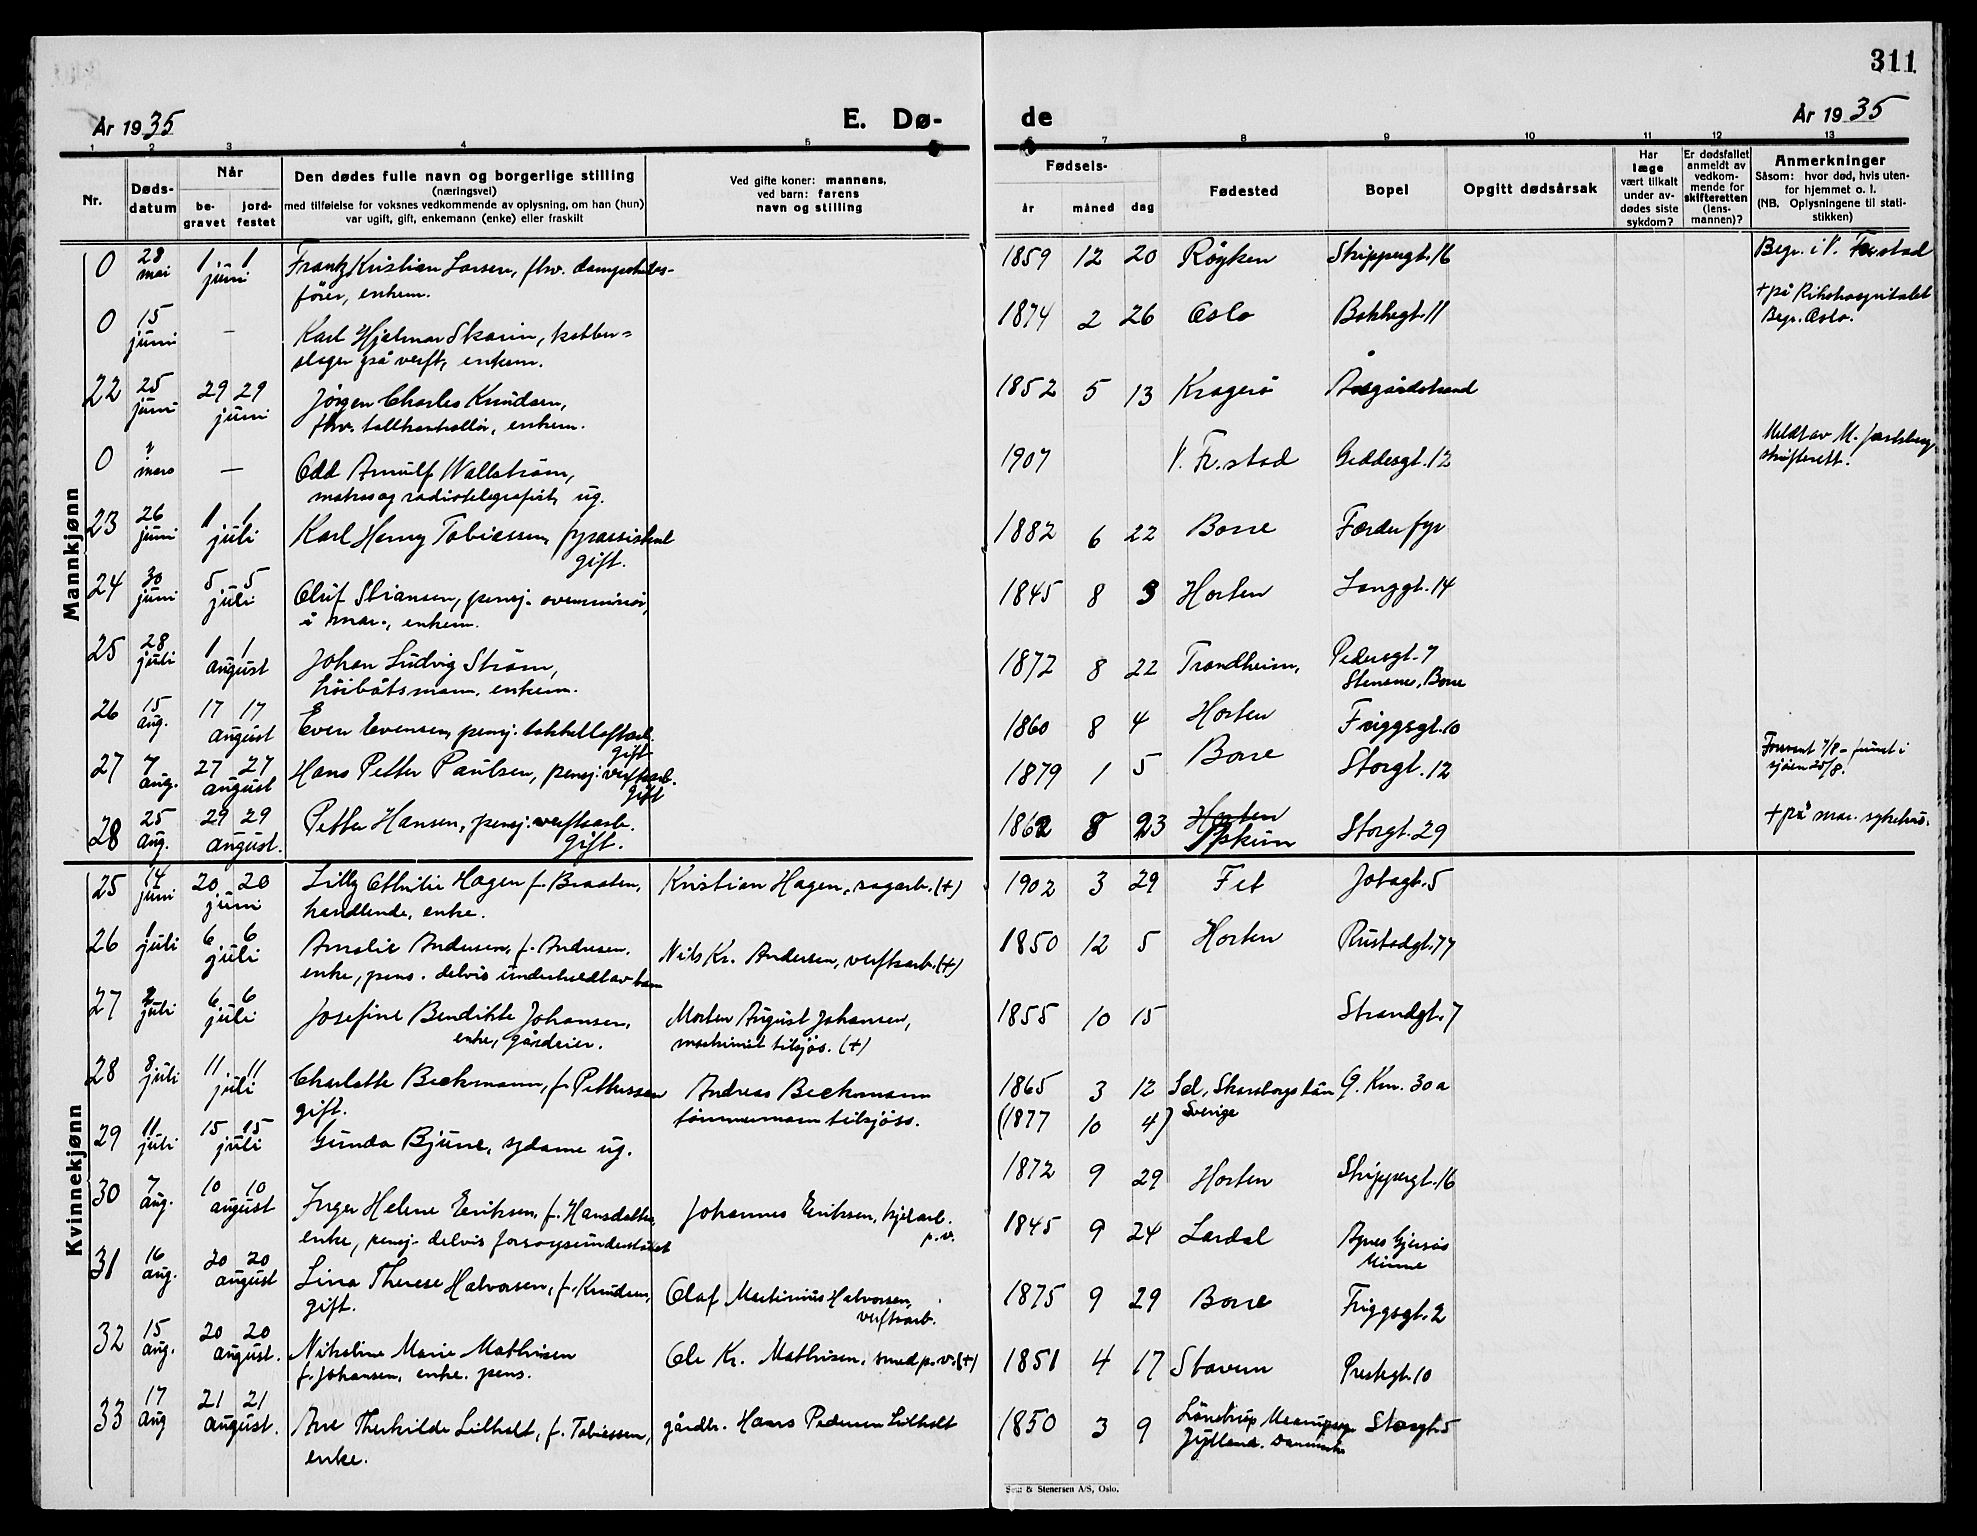 311
År 1935
E. Dø-
de
År 1935
1 2 3 4 5 6 7 8 9 10 11 12 13
Nr.
Døds-
datum
Når
be-
gravet
jord-
festet
Den dødes fulle navn og borgerlige stilling
(næringsvei)
med tilføielse for voksnes vedkommende av oplysning, om han (hun)
var ugift, gift, enkemann (enke) eller fraskilt
Ved gifte koner: mannens,
ved barn: farens
navn og stilling
Fødsels-
år måned dag
Fødested
Bopel
Opgitt dødsårsak
Har
læge
vært tilkalt
under av-
dødes siste
sykdom?
Er dødsfallet
anmeldt av
vedkom-
mende for
skifteretten
(lens-
mannen)?
Anmerkninger
Såsom: hvor død, hvis uten-
for hjemmet o. l.
(NB. Oplysningene til stati-
stikken)
Mannkjønn
0 28 mai 1 1 juni Frantz Kristian Larsen, fhv. dampskibs-
fører, enkem.
1859 12 20 Røyken Skippergt. 16 Begr. i V. Fr.stad
0 15 juni — Karl Hjalmar Skarin, kobber=
slager på verft, enkem.
1874 2 26 Oslo Bakkegt. 11 + på Rikshospitalet
Begr. Oslo.
22 25 juni 29 29 juni Jørgen Charles Knudsen,
fhv. tollkontrollør, enkem.
1852 5 13 Kragerø Åsgårdstrand
0 ? mars — Odd Arnulf Wallstrøm,
matros og radiotelegrafist, ug.
1907 V. Fr.stad Geddesgt. 12 Meldt av N. Jarlsberg
skifterett.
23 26 juni 1 1 juli Karl Henry Tobiassen, fyrassistent
gift.
1882 6 22 Borre Færder fyr
24 30 juni 5 5 juli Oluf Stiansen, pensj. overminør,
i mar., enkem.
1845 8 3 Horten Langgt. 14
25 28 juli 1 1 august Johan Ludvig Strøm,
høibåtsmann, enkem.
1872 8 22 Trondheim, Pedersgt. 7
Stensnes, Borre
26 15 aug. 17 17 august Even Evensen, pensj. takkelloftsarb.
gift
1860 8 4 Horten Friggsgt. 10
27 7 aug. 27 27 august Hans Petter Paulsen, pensj. verftsarb.
gift
1879 1 5 Borre Storgt. 12 Forsvant 7/8 – funnet i
sjøen 25/8.
28 25 aug. 29 29 august. Petter Hansen, pensj. verftsarb.
gift.
1862 8 23 Horten
Askim Storgt. 29 + på mar. sykehus.
Kvinnekjønn
25 14 juni 20 20 juni Lilly Othilie Hagen f. Braaten,
handlende, enke.
Kristian Hagen, sagarb. (+)
1902 3 29 Fet Jotagt. 5
26 1 juli 6 6 juli Amalie Andersen, f. Andresen.
enke, pens. delvis underholdt av barn
Nils Kr. Andersen, verftsarb. (+)
1850 12 5 Horten Rustadgt. 77
27 2 juli 6 6 juli Josefine Bendikte Johansen,
enke, gårdeier.
Morten August Johansen,
maskinist tilsjøs. (+)
1855 10 15 Strandgt. 7
28 8 juli 11 11 juli Charlotte Beckmann, f. Pettersson
gift.
Andreas Beckmann
tømmermann tilsjøss.
1865 3 12 Sel, Skaraborgs län G. Km. 30a
(1877 10 4) Sverige
29 11 juli 15 15 juli Gunda Bjune, sydame ug.
1872 9 29 Horten Skippergt. 16
30 7 aug. 10 10 august Inger Helene Eriksen, f. Hansdatter,
enke, pensj. delvis forsorgsunderstøttet
Johannes Eriksen, kjelarb.
p.v.
1845 9 24 Lardal Agnes Gjersøs
Minne
31 16 aug. 20 20 august Lina Therese Halvorsen, f. Knudsen,
gift.
Olaf Martinius Halvorsen,
verftsarb.
1875 9 29 Borre Friggsgt. 2
32 15 aug. 20 20 august. Nikoline Marie Mathisen
f. Johansen, enke. pens.
Ole Kr. Mathisen, smed p. v. (+)
1851 4 17 Stavern Prestegt. 10
33 17 aug 21 21 august. Ane Therkilde Lilholt, f. Tobiassen,
enke.
gårdbr. Hans Pedersen Lilholt
1850 3 9 Lønstrup
Jylland. Danmark Storgt. 5
Sem & Stenersen A/S, Oslo.